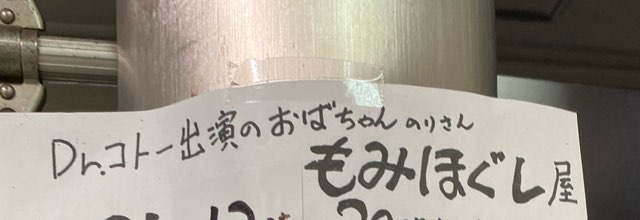 Dr.コトー出演のおばちゃん のりさん
もみほぐし屋